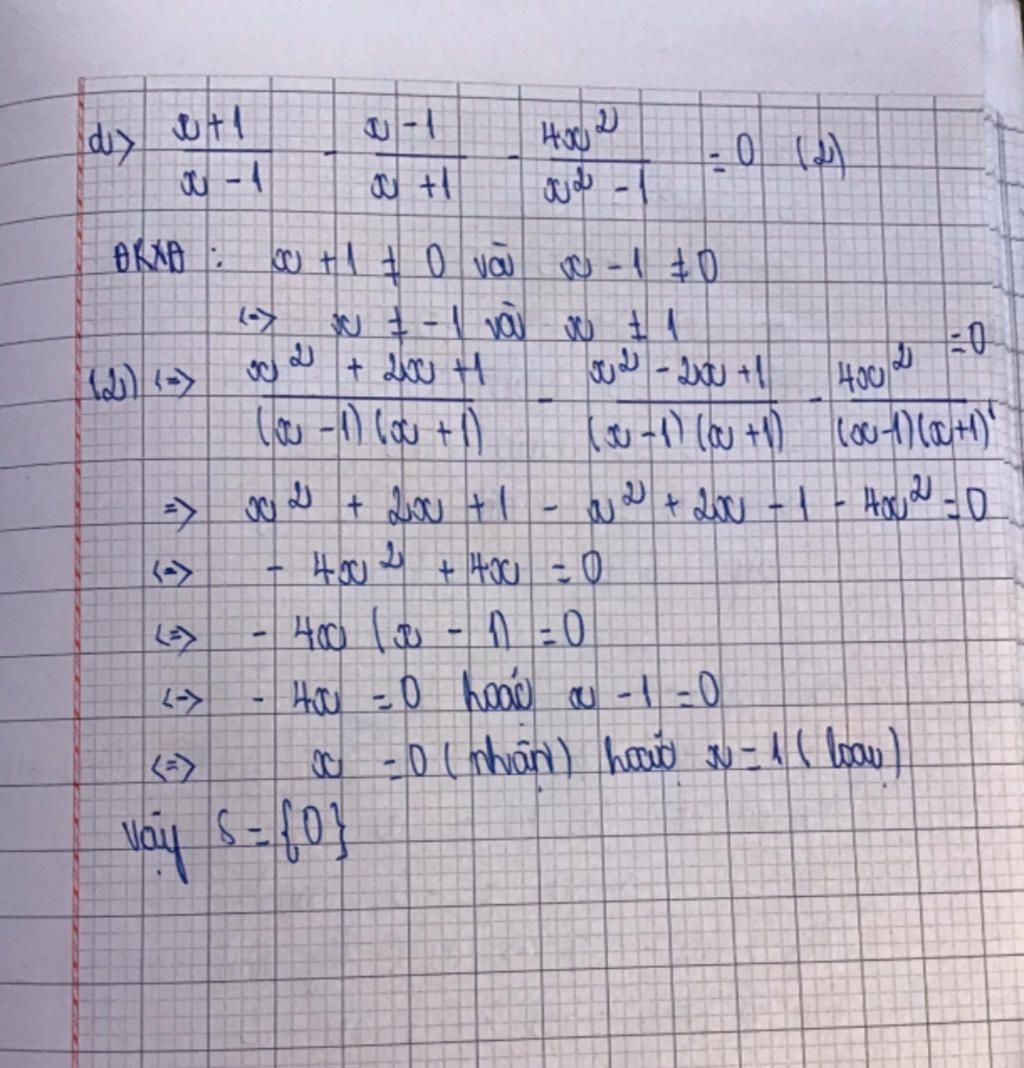 d> x+1/x-1 - x-1/x+1 - 4x²/x²-1 = 0 (2)
ĐKXĐ : x +1 ≠ 0 và x - 1 ≠ 0
<=> x ≠ -1 và x ≠ 1
(2) <=> x² + 2x +1/(x -1)(x +1) - x² - 2x +1/(x -1)(x +1) - 4x²/(x-1)(x+1) = 0
=> x² + 2x +1 - x² + 2x - 1 - 4x² = 0
<=> - 4x² + 4x = 0
<=> - 4x (x - 1) = 0
<=> - 4x = 0 hoặc x - 1 = 0
<=> x = 0 (nhận) hoặc x = 1 (loại)
Vậy S = {0}